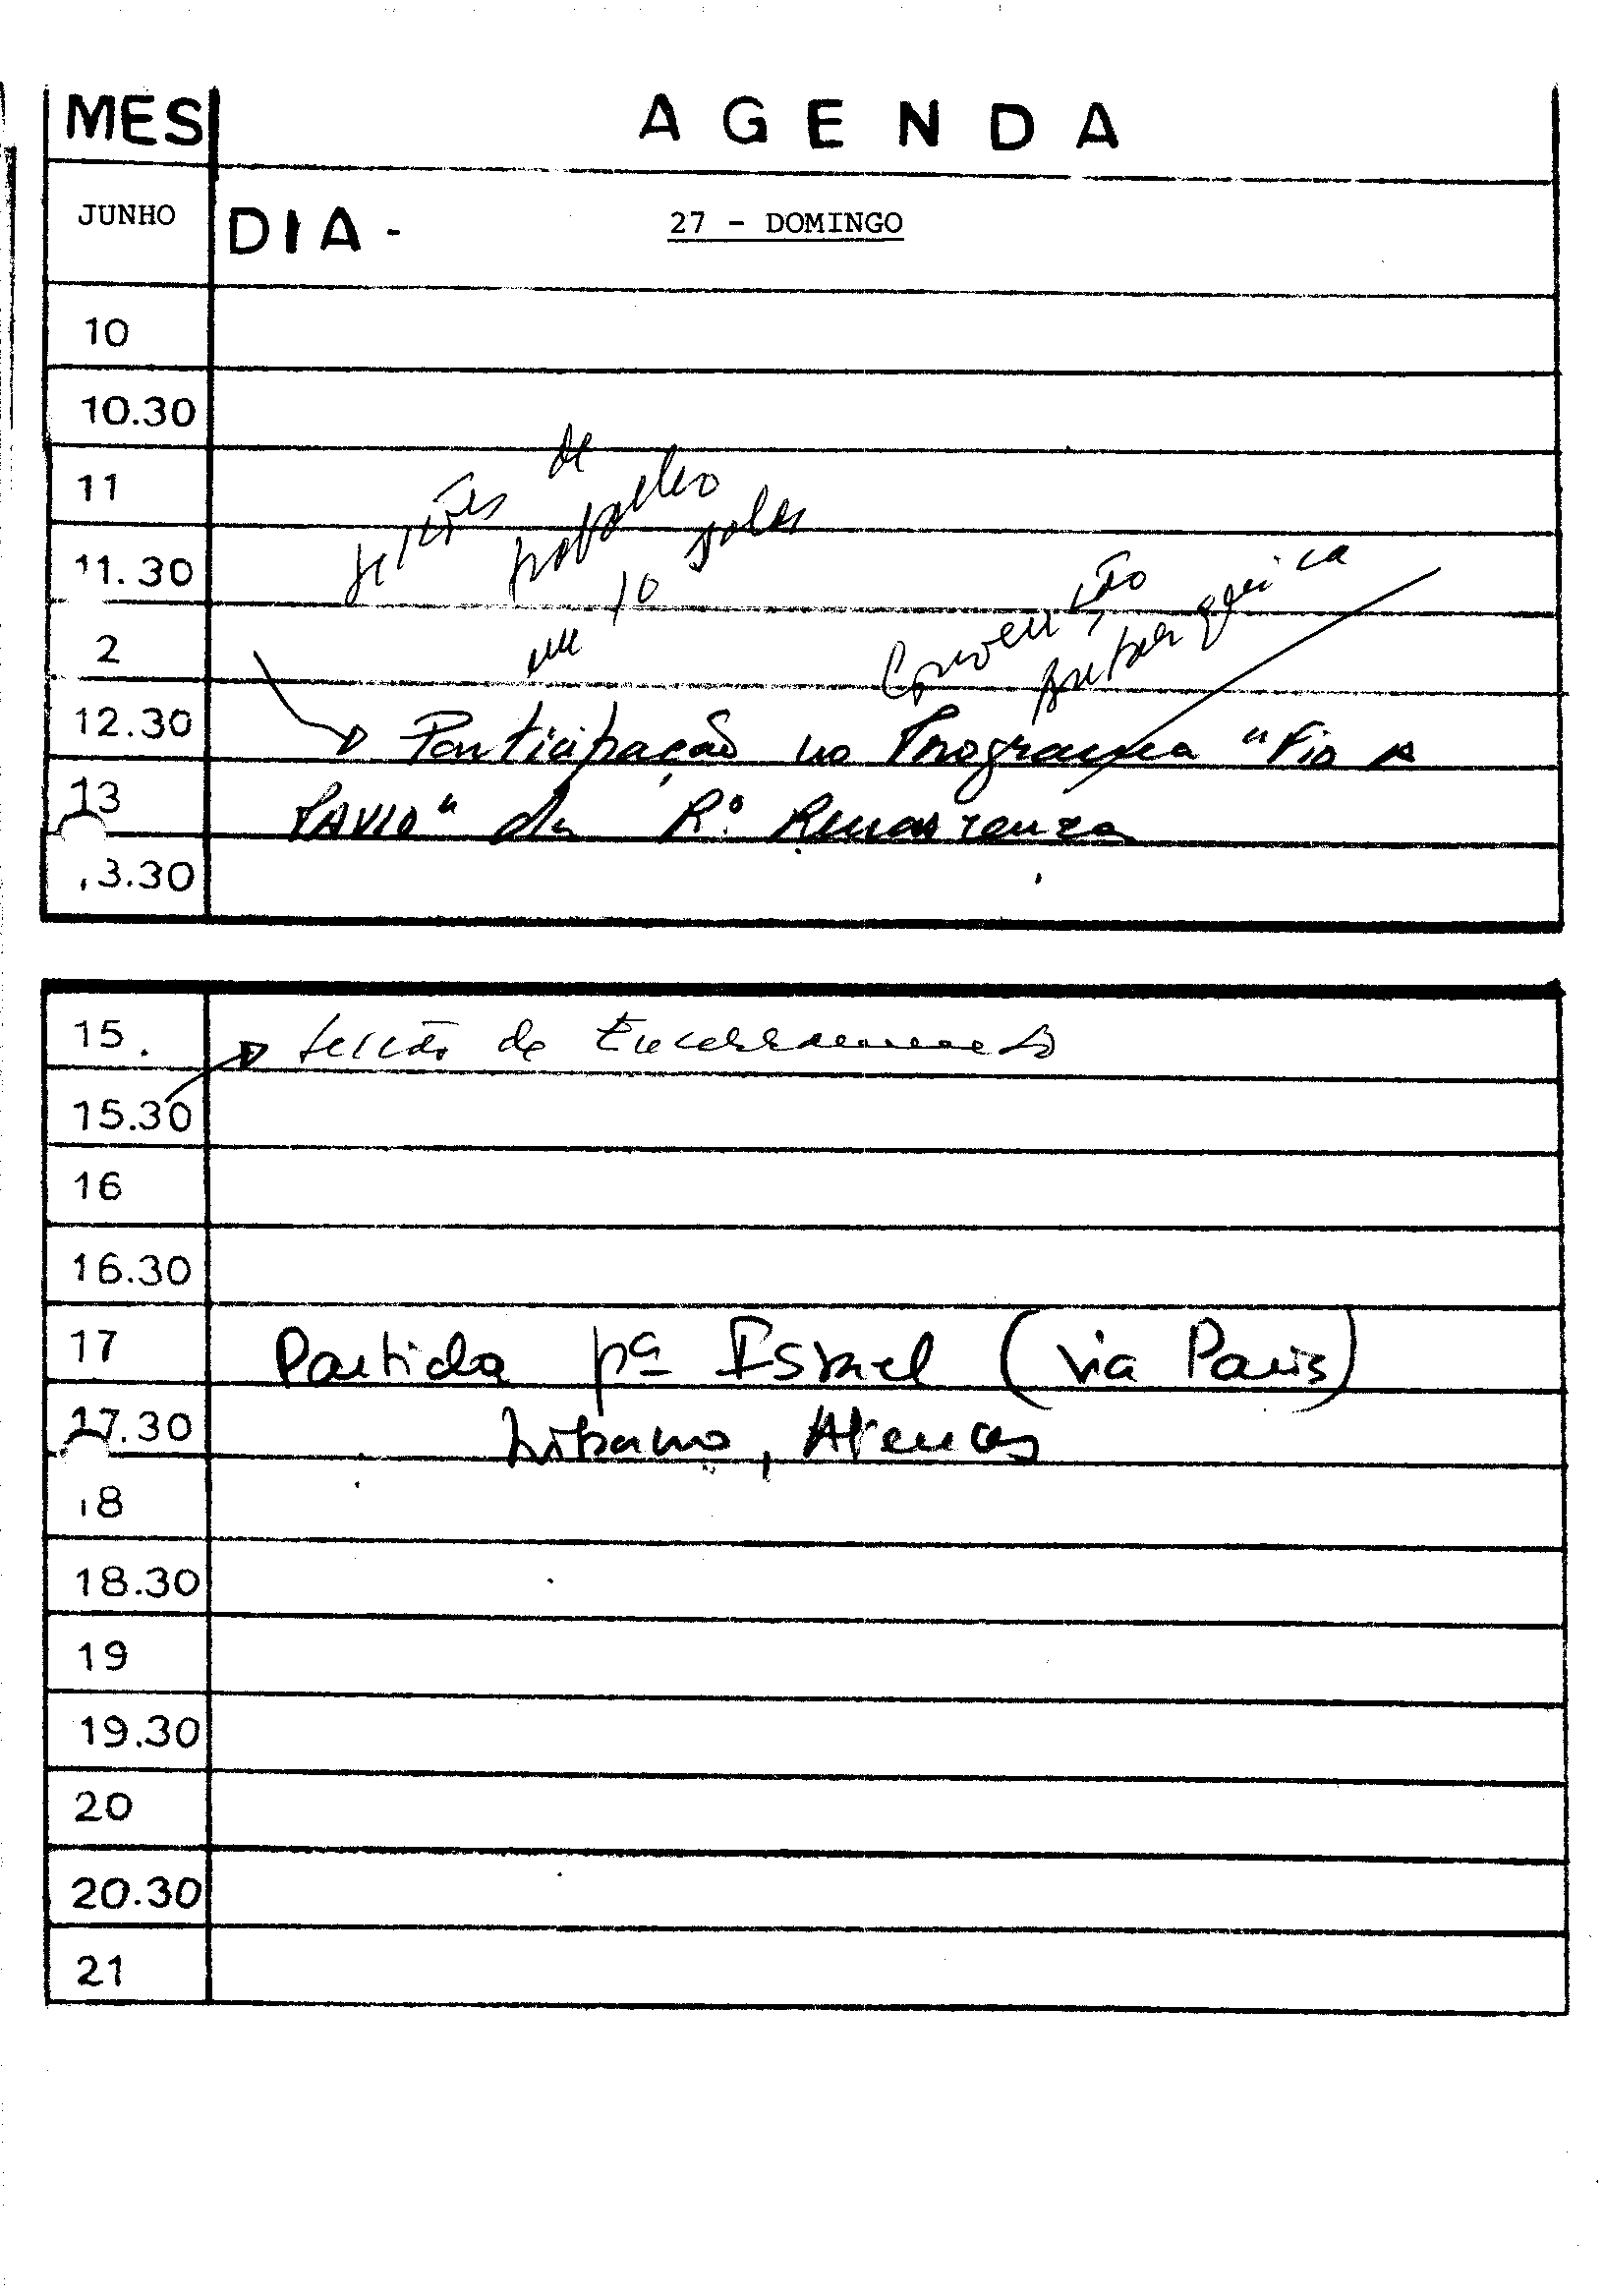 MES AGENDA
JUNHO DIA - 27 - DOMINGO
10
10.30
11 sessões de trabalho
11.30 em 10 salas
Convenção Autarquica
2
12.30 Participação no Programa "Fio A
13 PAVIO" da Rª Renascença
13.30
15. sessão de Encerramento
15.30
16
16.30
17 Partida pª Israel (via Paris)
17.30 Líbano, Atenas
18
18.30
19
19.30
20
20.30
21